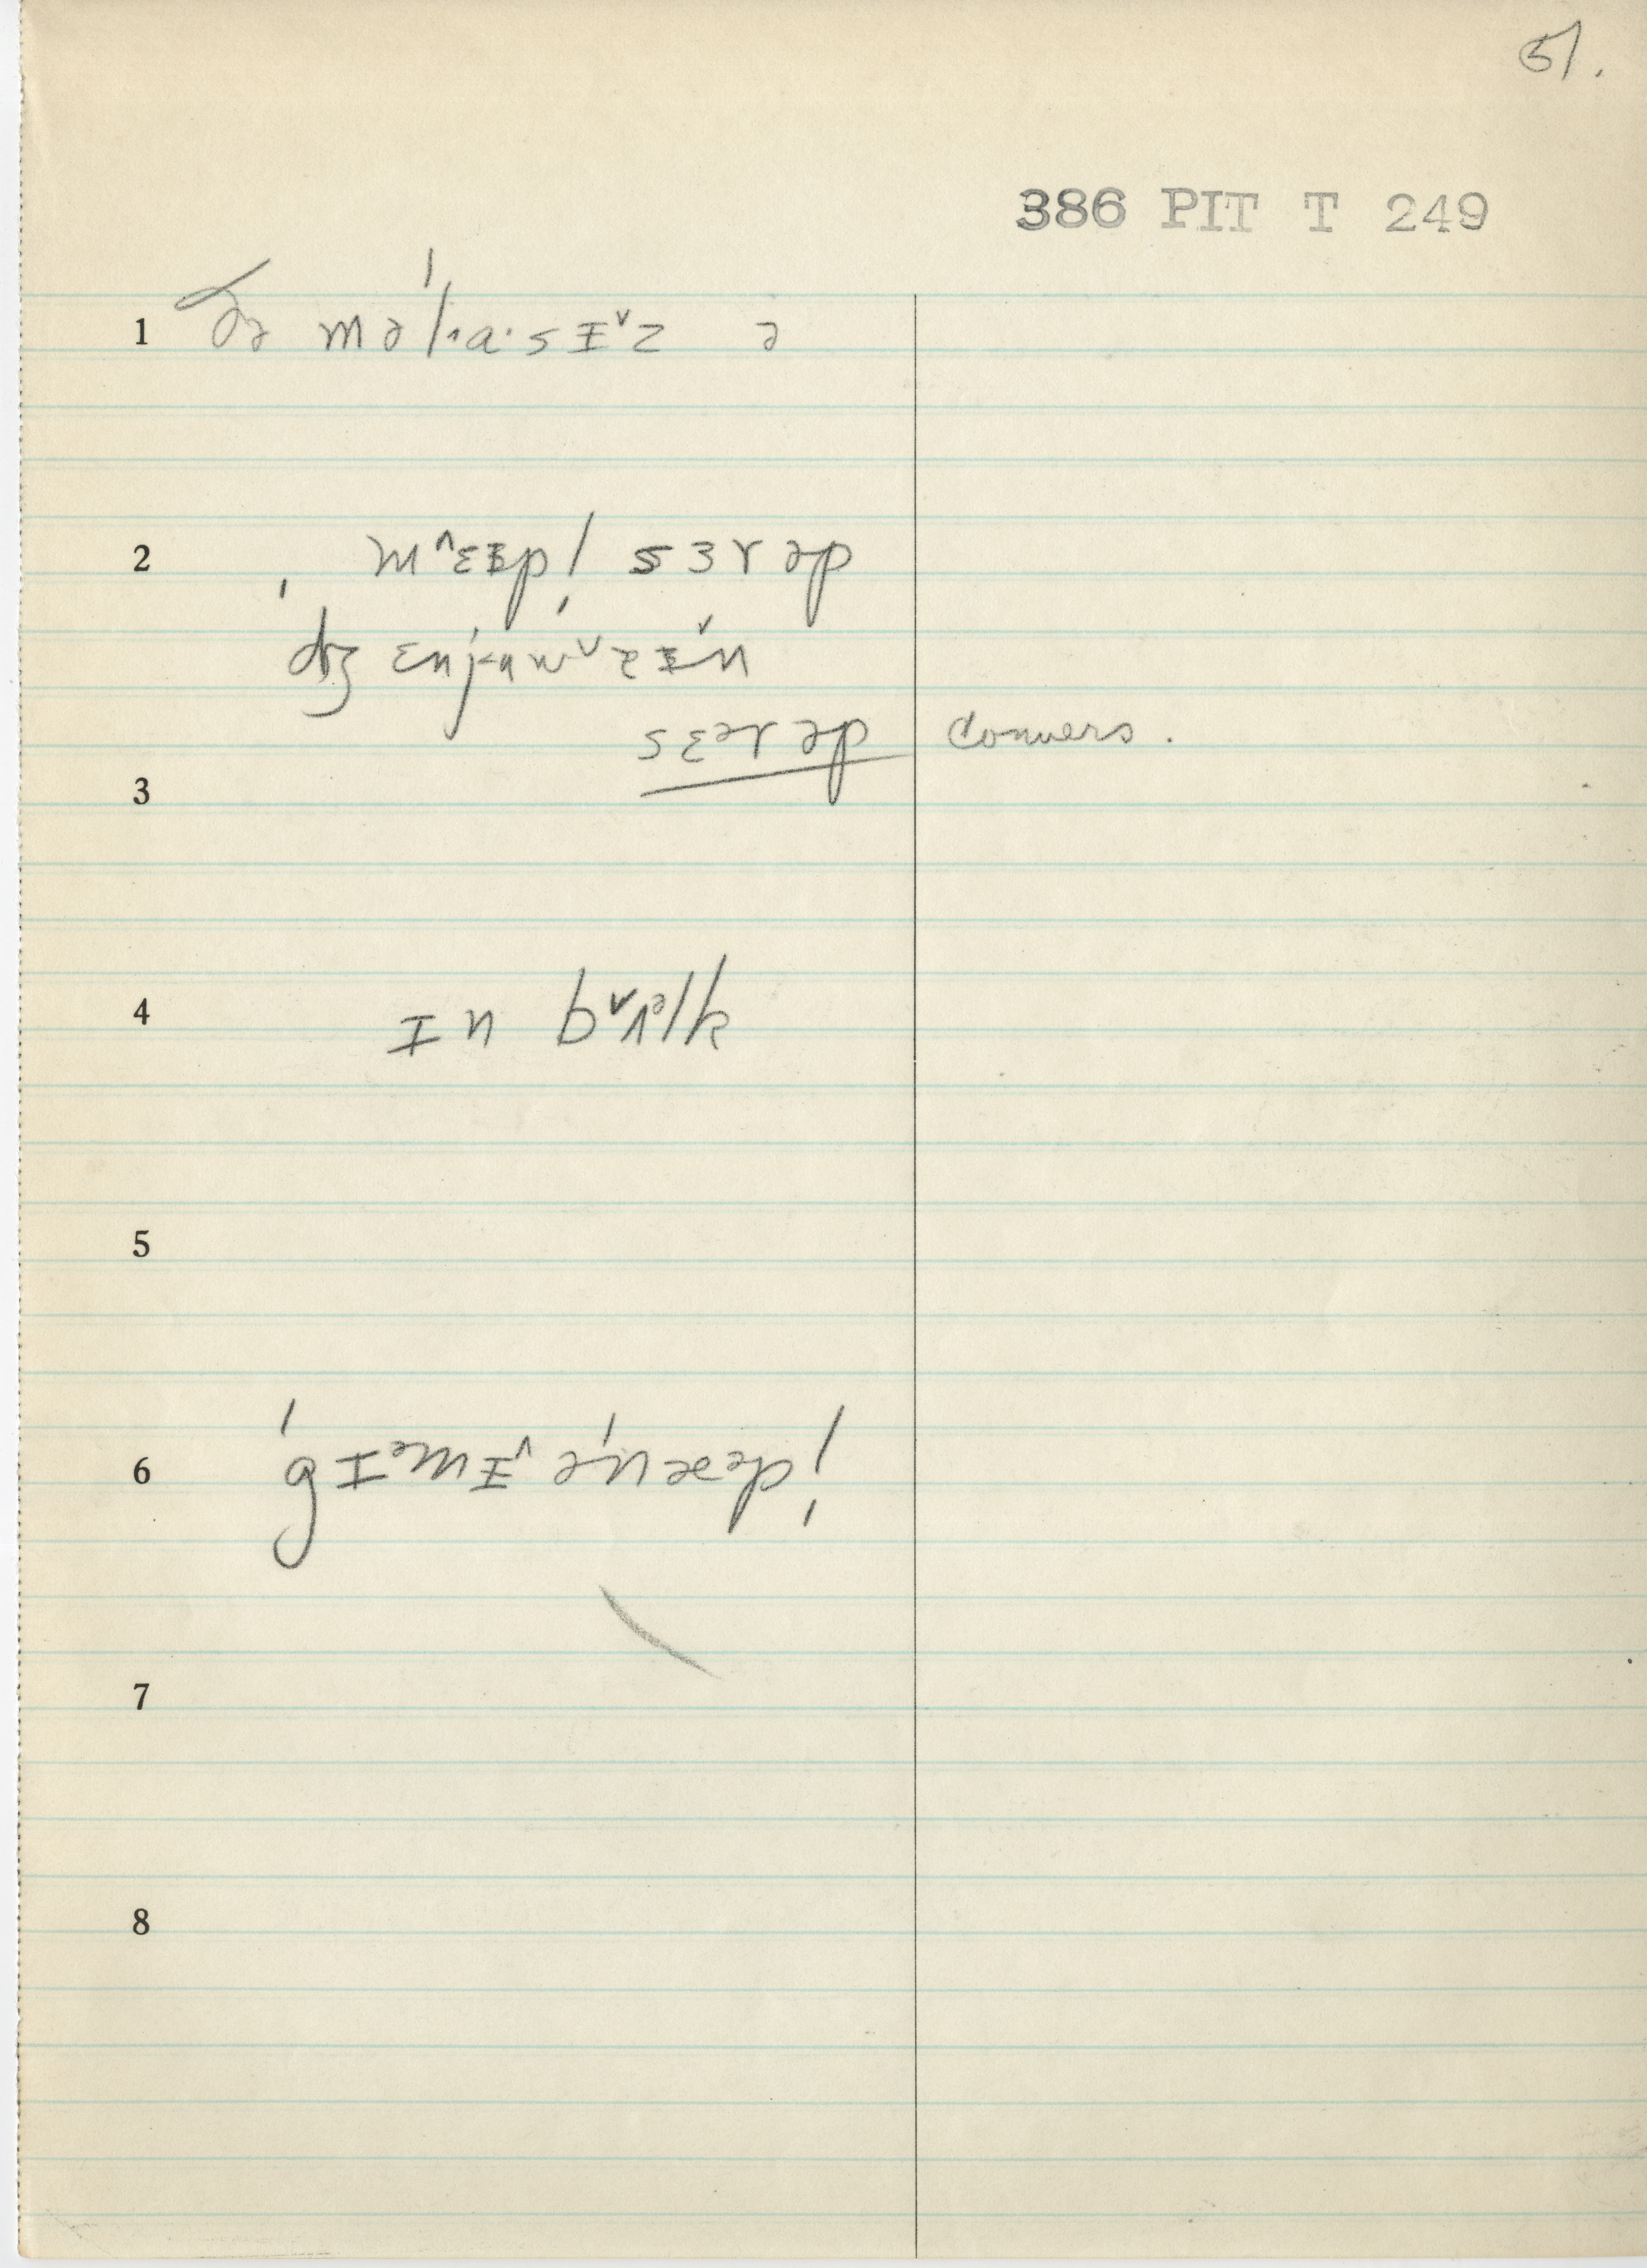 51.
386 PIT T 249
1 ðə məˈlɑ·sɪ˅z ə
2 m˄ɛɪpl sɜrəp
ˌdʒɛnjʊw˅ɪ˅n
sɛərəp convers.
3
4 ɪn b˅ʌᵊlk
5
6 ˈgɪᵊmɪ˄ əˈnæᵊpl̩
7
8